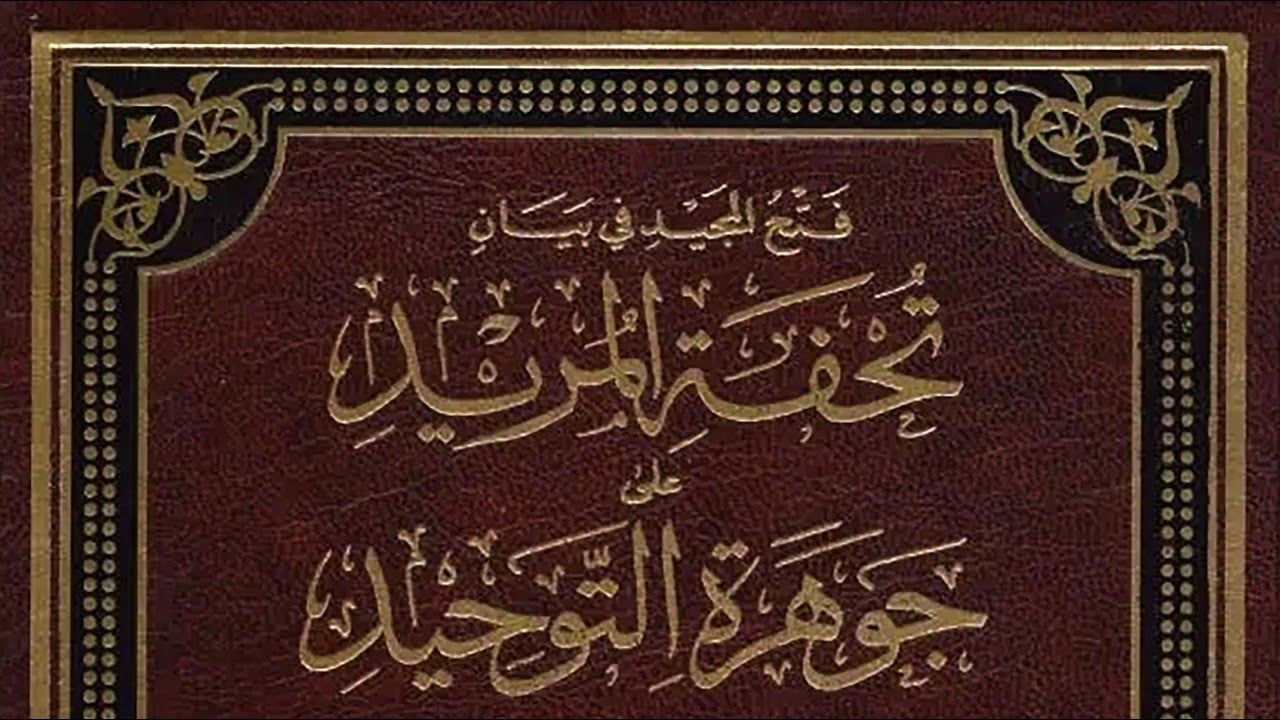 فَتْحُ المَجَيْدِ فِي بَيَانِ
تُحْفَةِ المُرِيْدِ
عَلىٰ
جَوْهَرَةِ التَّوْحِيْدِ